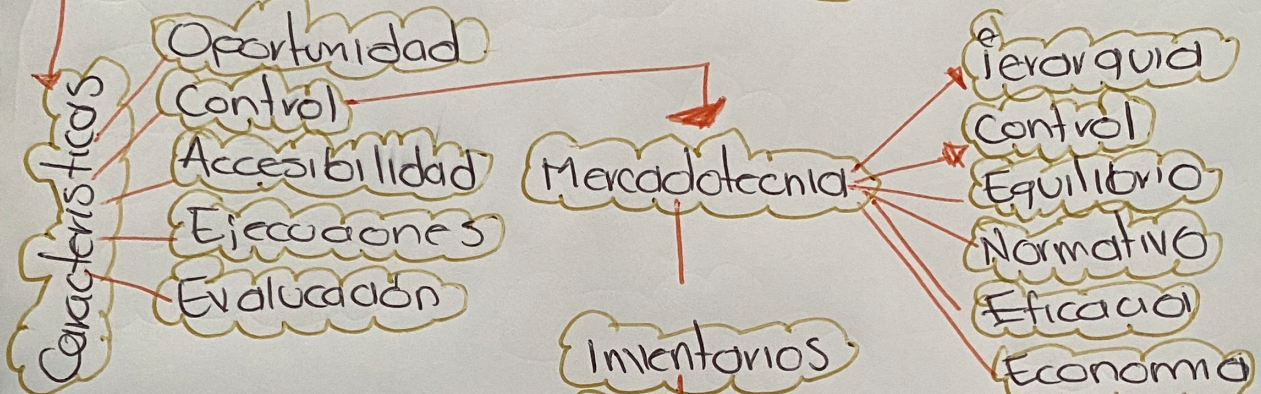 Características
Oportunidad
Control
Accesibilidad
Ejecuciones
Evalucación
Mercadotecnia
Inventarios
jerarquia
Control
Equilibrio
Normativo
Eficacia
Economia